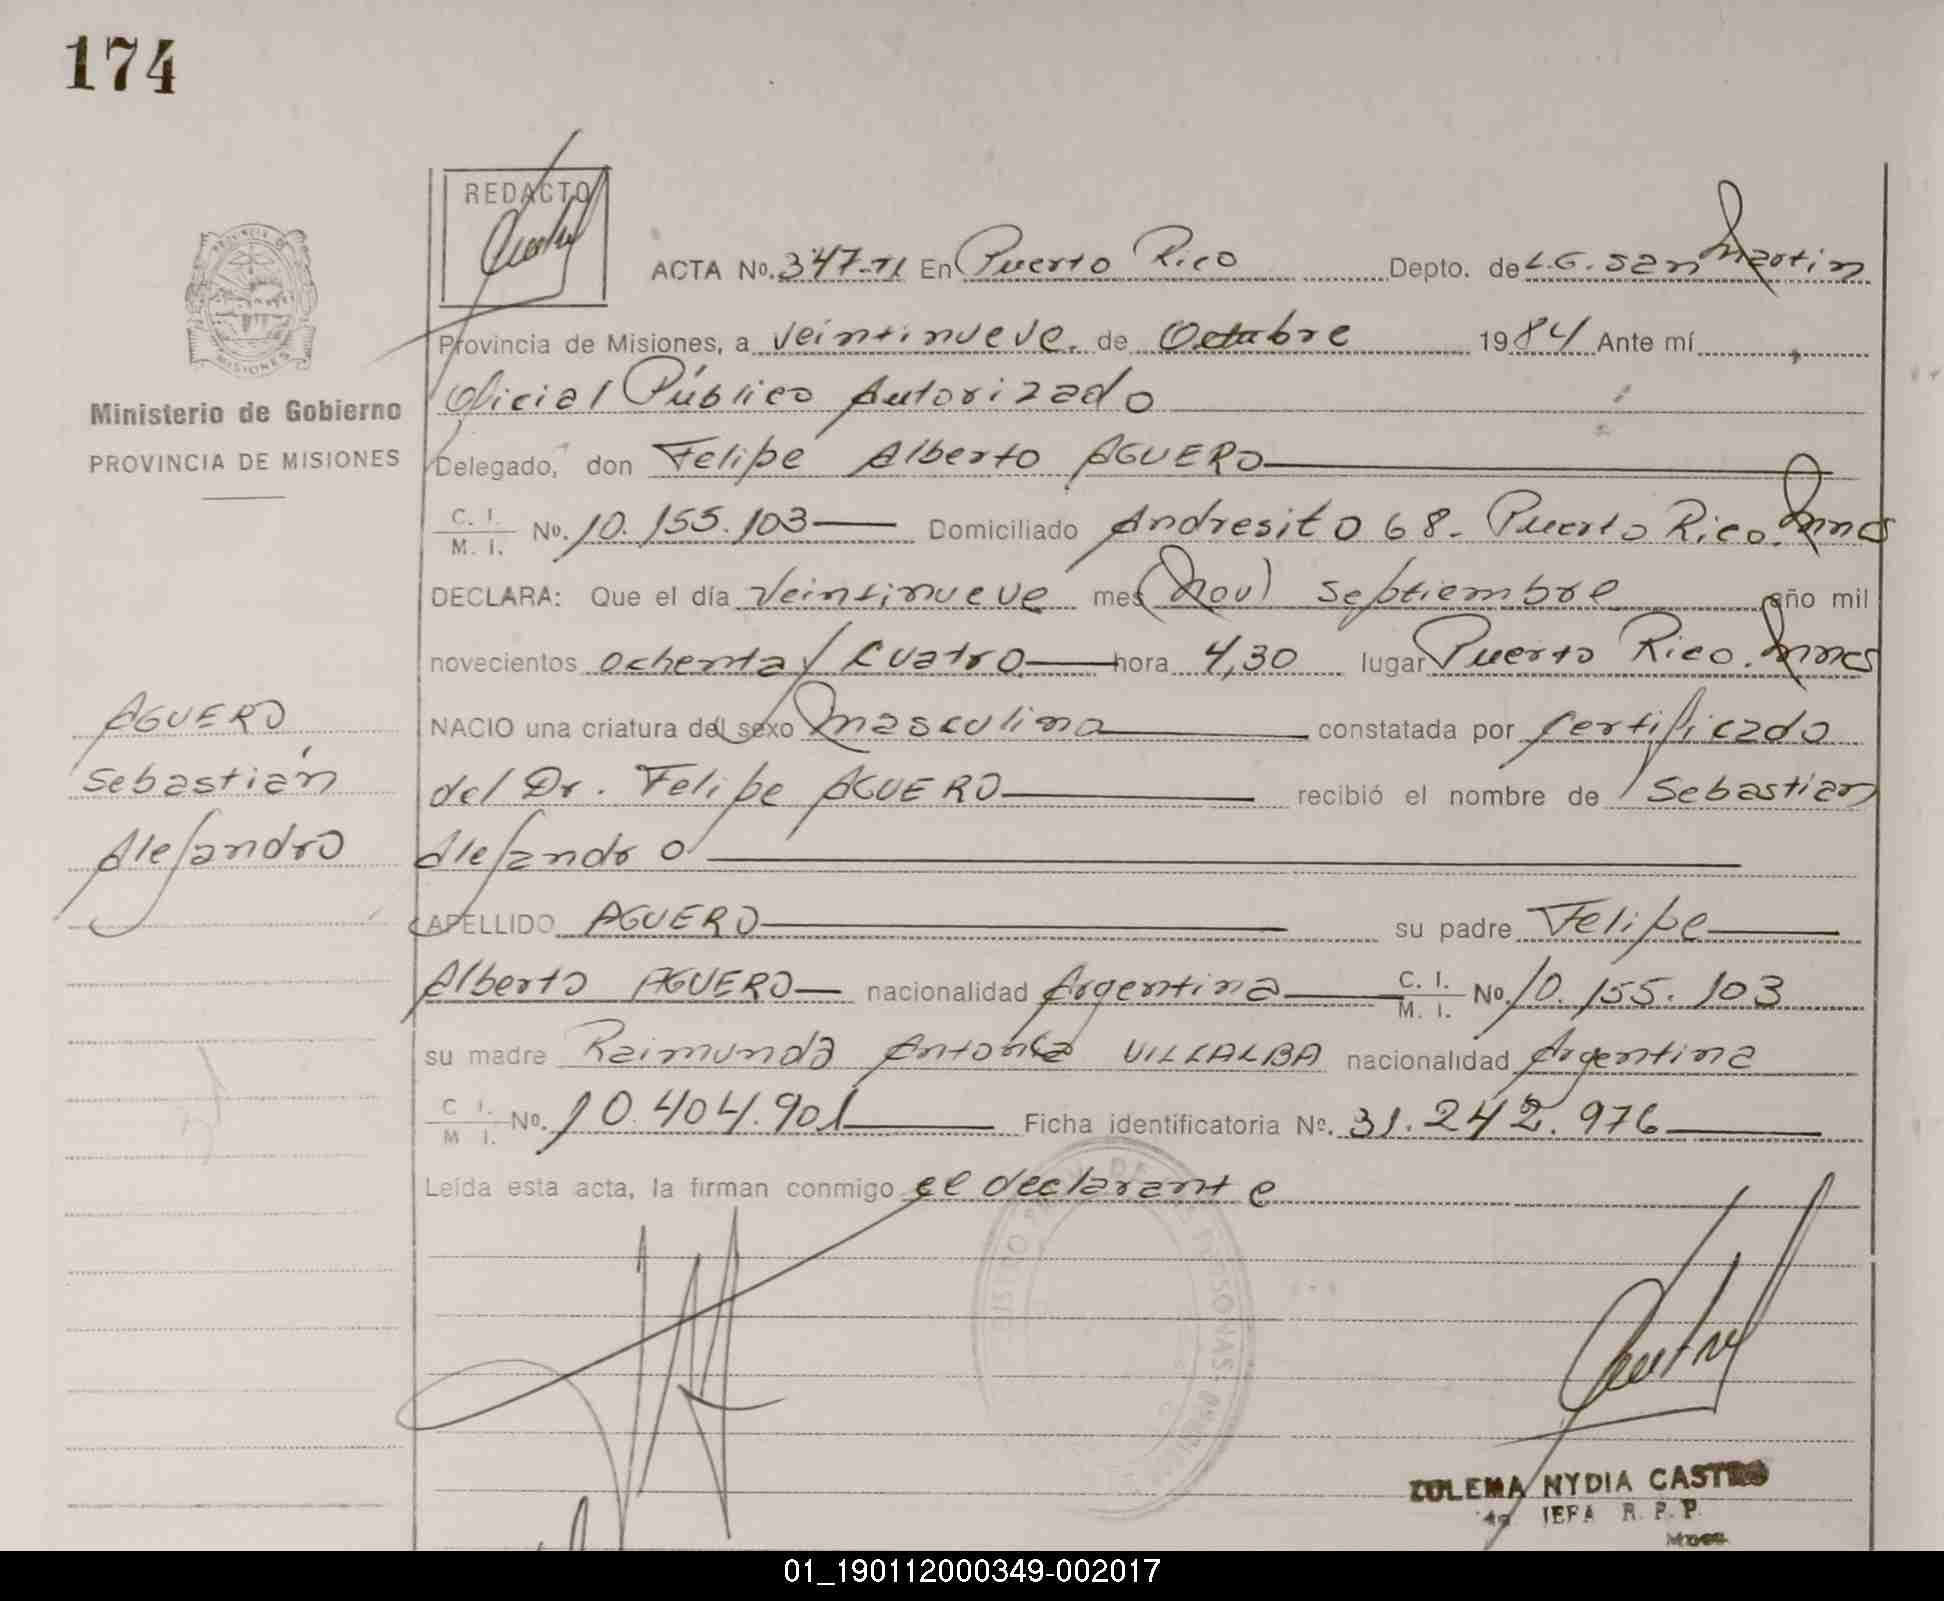 174
REDACTO
ACTA No. 347-TI En Puerto Rico Depto. de L.G. San Martin
Provincia de Misiones, a veintinueve. de Octubre 1984 Ante mí
Oficial Público Autorizado
Ministerio de Gobierno
PROVINCIA DE MISIONES
Delegado, don Felipe Alberto AGUERO
C. I.
M. I. No. 10.155.103 Domiciliado Andresito 68- Puerto Rico. Mnes
DECLARA: Que el día veintinueve mes (Nov) Septiembre año mil
novecientos ochenta y cuatro hora 4,30 lugar Puerto Rico. Mnes
NACIO una criatura del sexo masculino constatada por certificado
del Dr. Felipe AGUERO recibió el nombre de Sebastian
Alejandro
AGUERO
Sebastián
Alejandro
APELLIDO AGUERO su padre Felipe
Alberto AGUERO nacionalidad Argentina C. I.
M. I. No. 10.155.103
su madre Raimunda Antonia VILLALBA nacionalidad Argentina
C I.
M I. No. 10.404.901 Ficha identificatoria No. 31.242.976
Leída esta acta, la firman conmigo el declarante
ZULEMA NYDIA CASTRO
R. P. P.
01_190112000349-002017